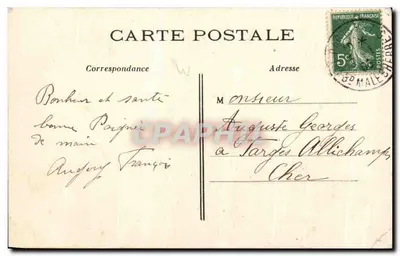 CARTE POSTALE
REPUBLIQUE FRANÇAISE
5c
Correspondance
Adresse
Bonheur et santé
bonne Poignée
de main
François
Monsieur
Auguste Georges
à Farges Allichamps
Cher
CPARAMA